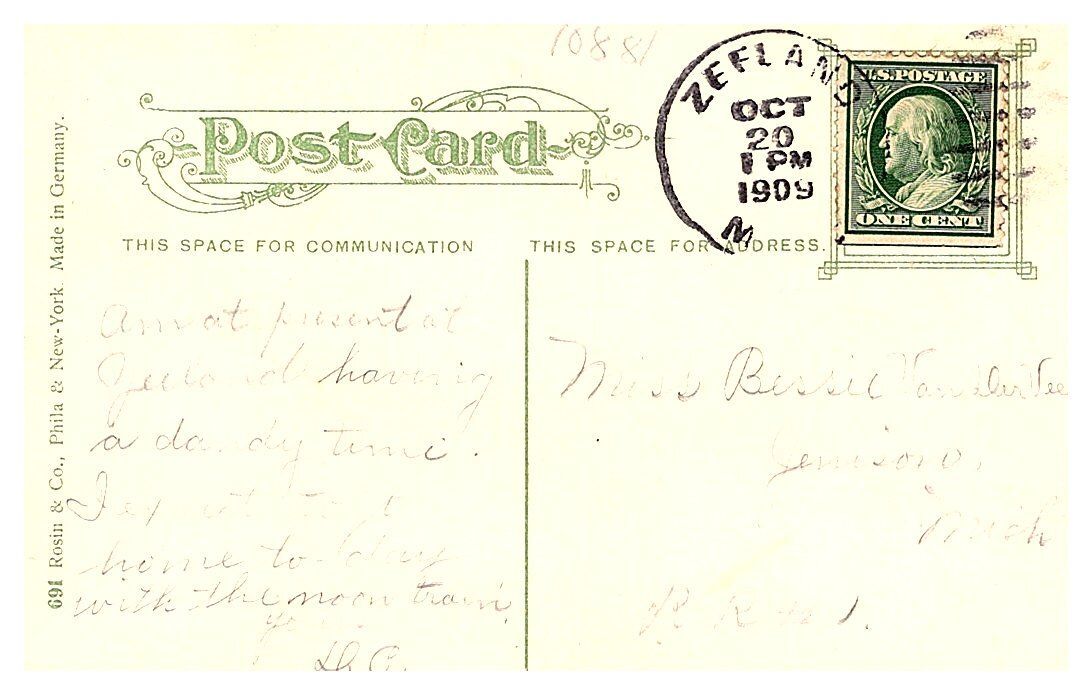 10881
ZEELAND
OCT
20
1 PM
1909
M
U.S. POSTAGE
ONE CENT
Post Card
THIS SPACE FOR COMMUNICATION
THIS SPACE FOR ADDRESS.
691 Rosin & Co., Phila & New-York. Made in Germany.
Am at present at
Zeeland having
a dandy time.
I expect to go
home to-day
with the noon train
Miss Bessie Van Der Vee
Jenison,
Mich
R R # 1.